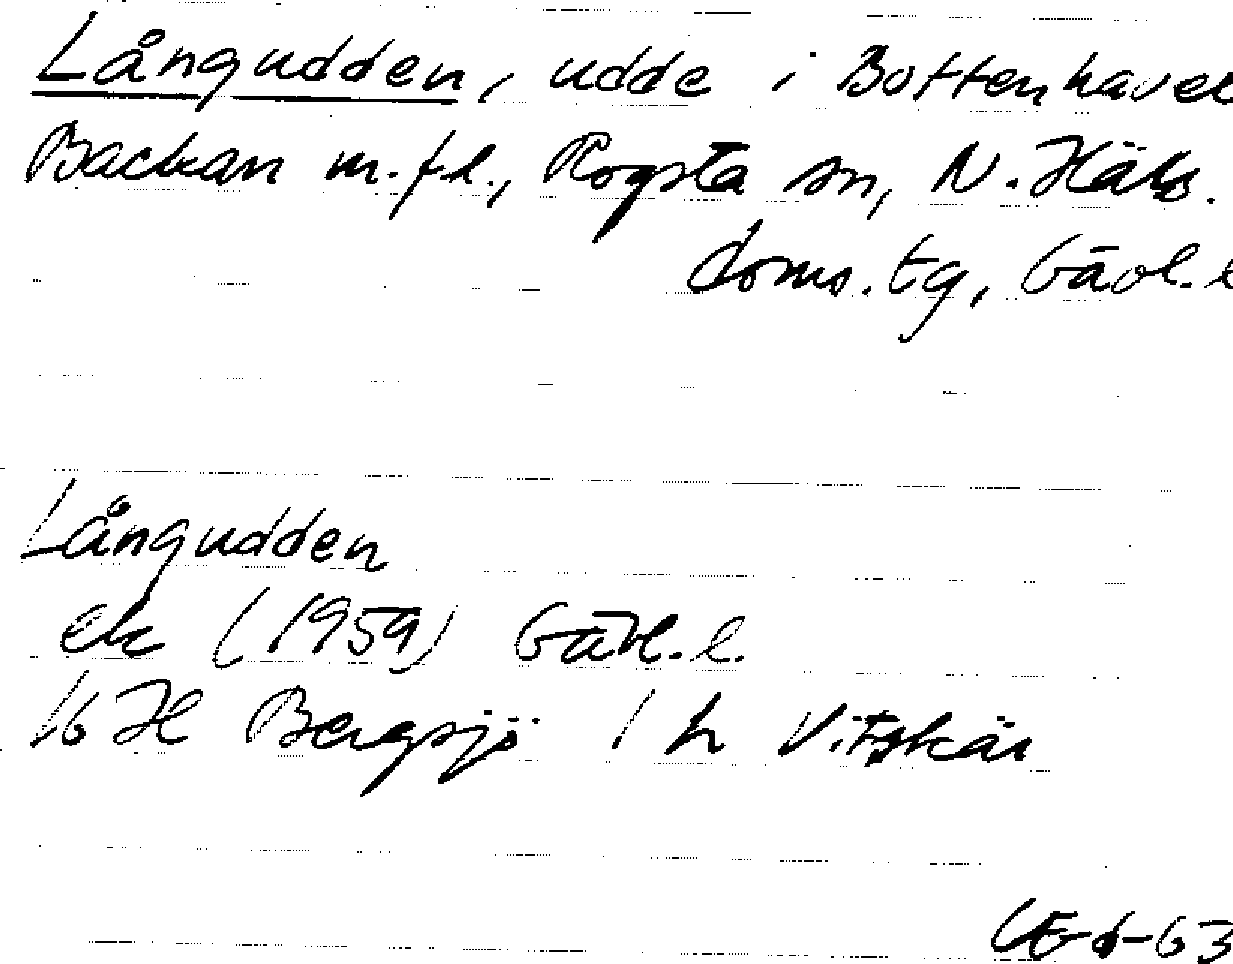 Långudden, udde i Bottenhavet
Backan m.fl., Rogsta sn, N. Häls.
doms. tg, Gävl. l
Långudden
ek (1959) Gävl. l.
16 H Bergsjö 1 h Vitskär